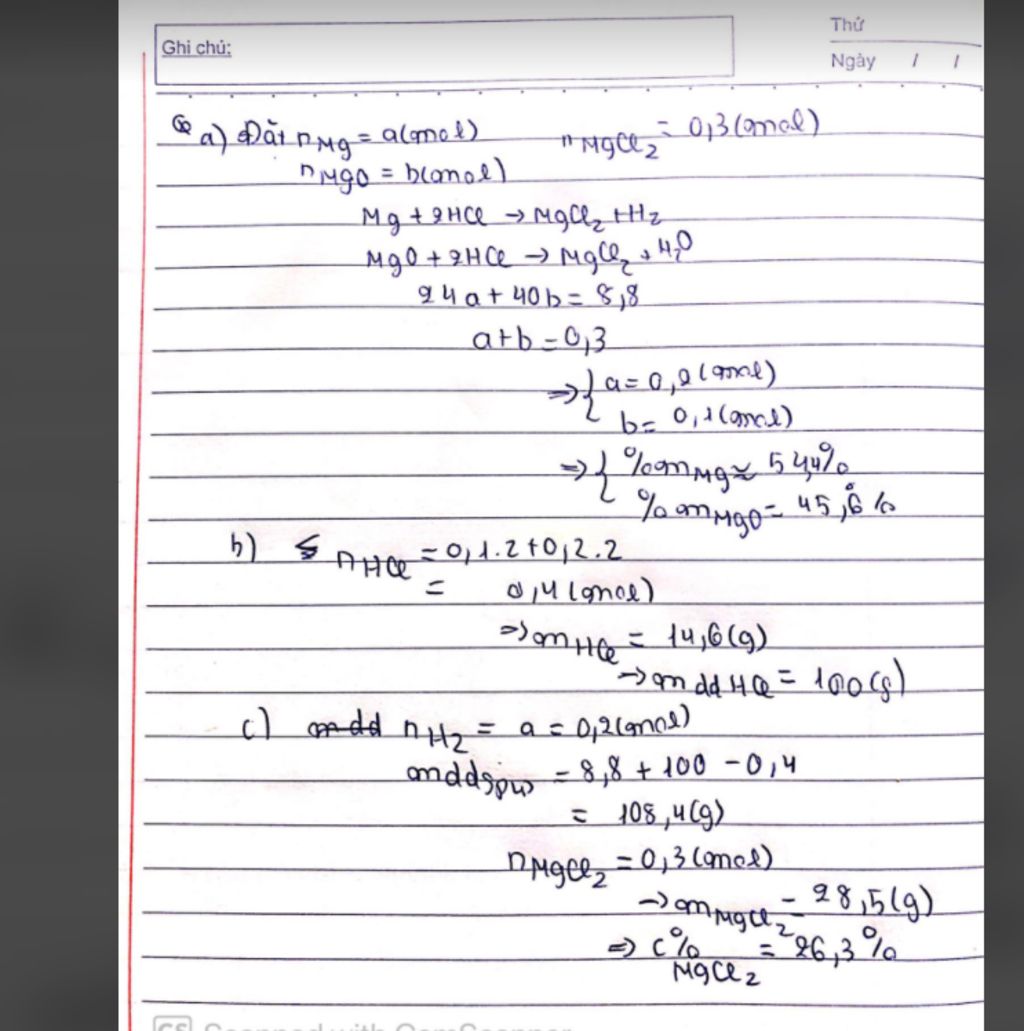 Ghi chú:
Thứ
Ngày / /
a) Đặt nMg = a(mol) nMgCl2 = 0,3(mol)
nMgO = b(mol)
Mg + 2HCl → MgCl2 + H2
MgO + 2HCl → MgCl2 + H2O
24a + 40b = 8,8
a+b = 0,3
=> { a = 0,2(mol)
b = 0,1(mol)
=> { %mMg ≈ 54,4%
%mMgO = 45,6%
b) nHCl = 0,1.2+0,2.2
= 0,4(mol)
=> mHCl = 14,6(g)
→ mddHCl = 100(g)
c) mdd nH2 = a = 0,2(mol)
mddspư = 8,8 + 100 - 0,4
= 108,4(g)
nMgCl2 = 0,3(mol)
→ mMgCl2 = 28,5(g)
=> C%MgCl2 = 26,3%
CS Scanned with CamScanner